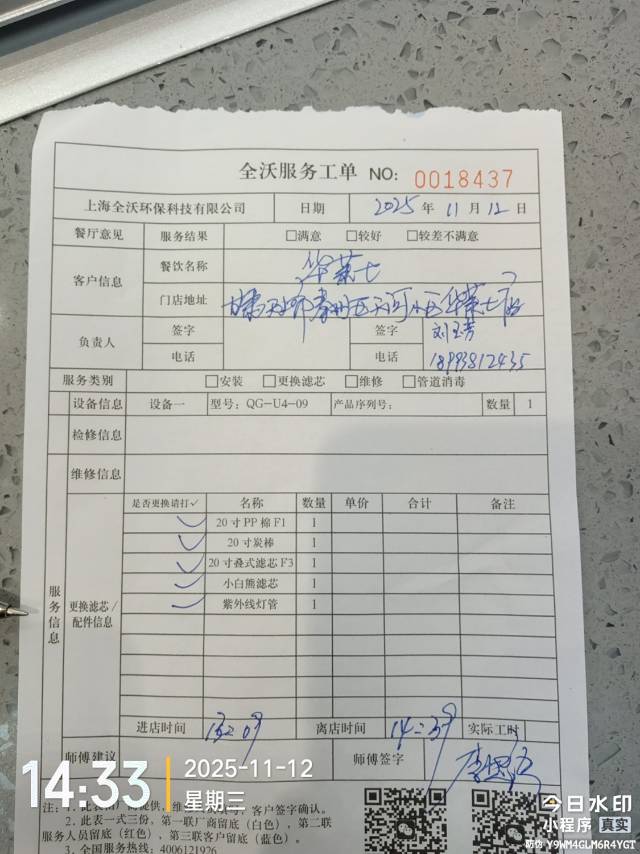 全沃服务工单 NO: 0018437
上海全沃环保科技有限公司 日期 2025 年 11 月 12 日
餐厅意见 服务结果 □满意 □较好 □较差不满意
客户信息 餐饮名称 华莱士
门店地址 甘肃天水市秦州区天河小区华莱士店
负责人 签字 签字
电话 电话 18993812435
服务类别 □安装 □更换滤芯 □维修 □管道消毒
设备信息 设备一 型号: QG-U4-09 产品序列号: 数量 1
检修信息
维修信息
服务信息
更换滤芯/配件信息
是否更换请打✓ 名称 数量 单价 合计 备注
✓ 20寸PP棉F1 1
✓ 20寸炭棒 1
✓ 20寸叠式滤芯F3 1
✓ 小白熊滤芯 1
✓ 紫外线灯管 1
进店时间 13:09 离店时间 14:39 实际工时
师傅建议 师傅签字
14:33 2025-11-12 星期三
注: 1. 客户签字确认。
2. 此表一式三份。第一联厂商留底（白色），第二联
服务人员留底（红色），第三联客户留底（蓝色）。
3. 全国服务热线: 4006121926
今日水印
小程序 真实
防伪 Y9WM4GLM6R4YGT